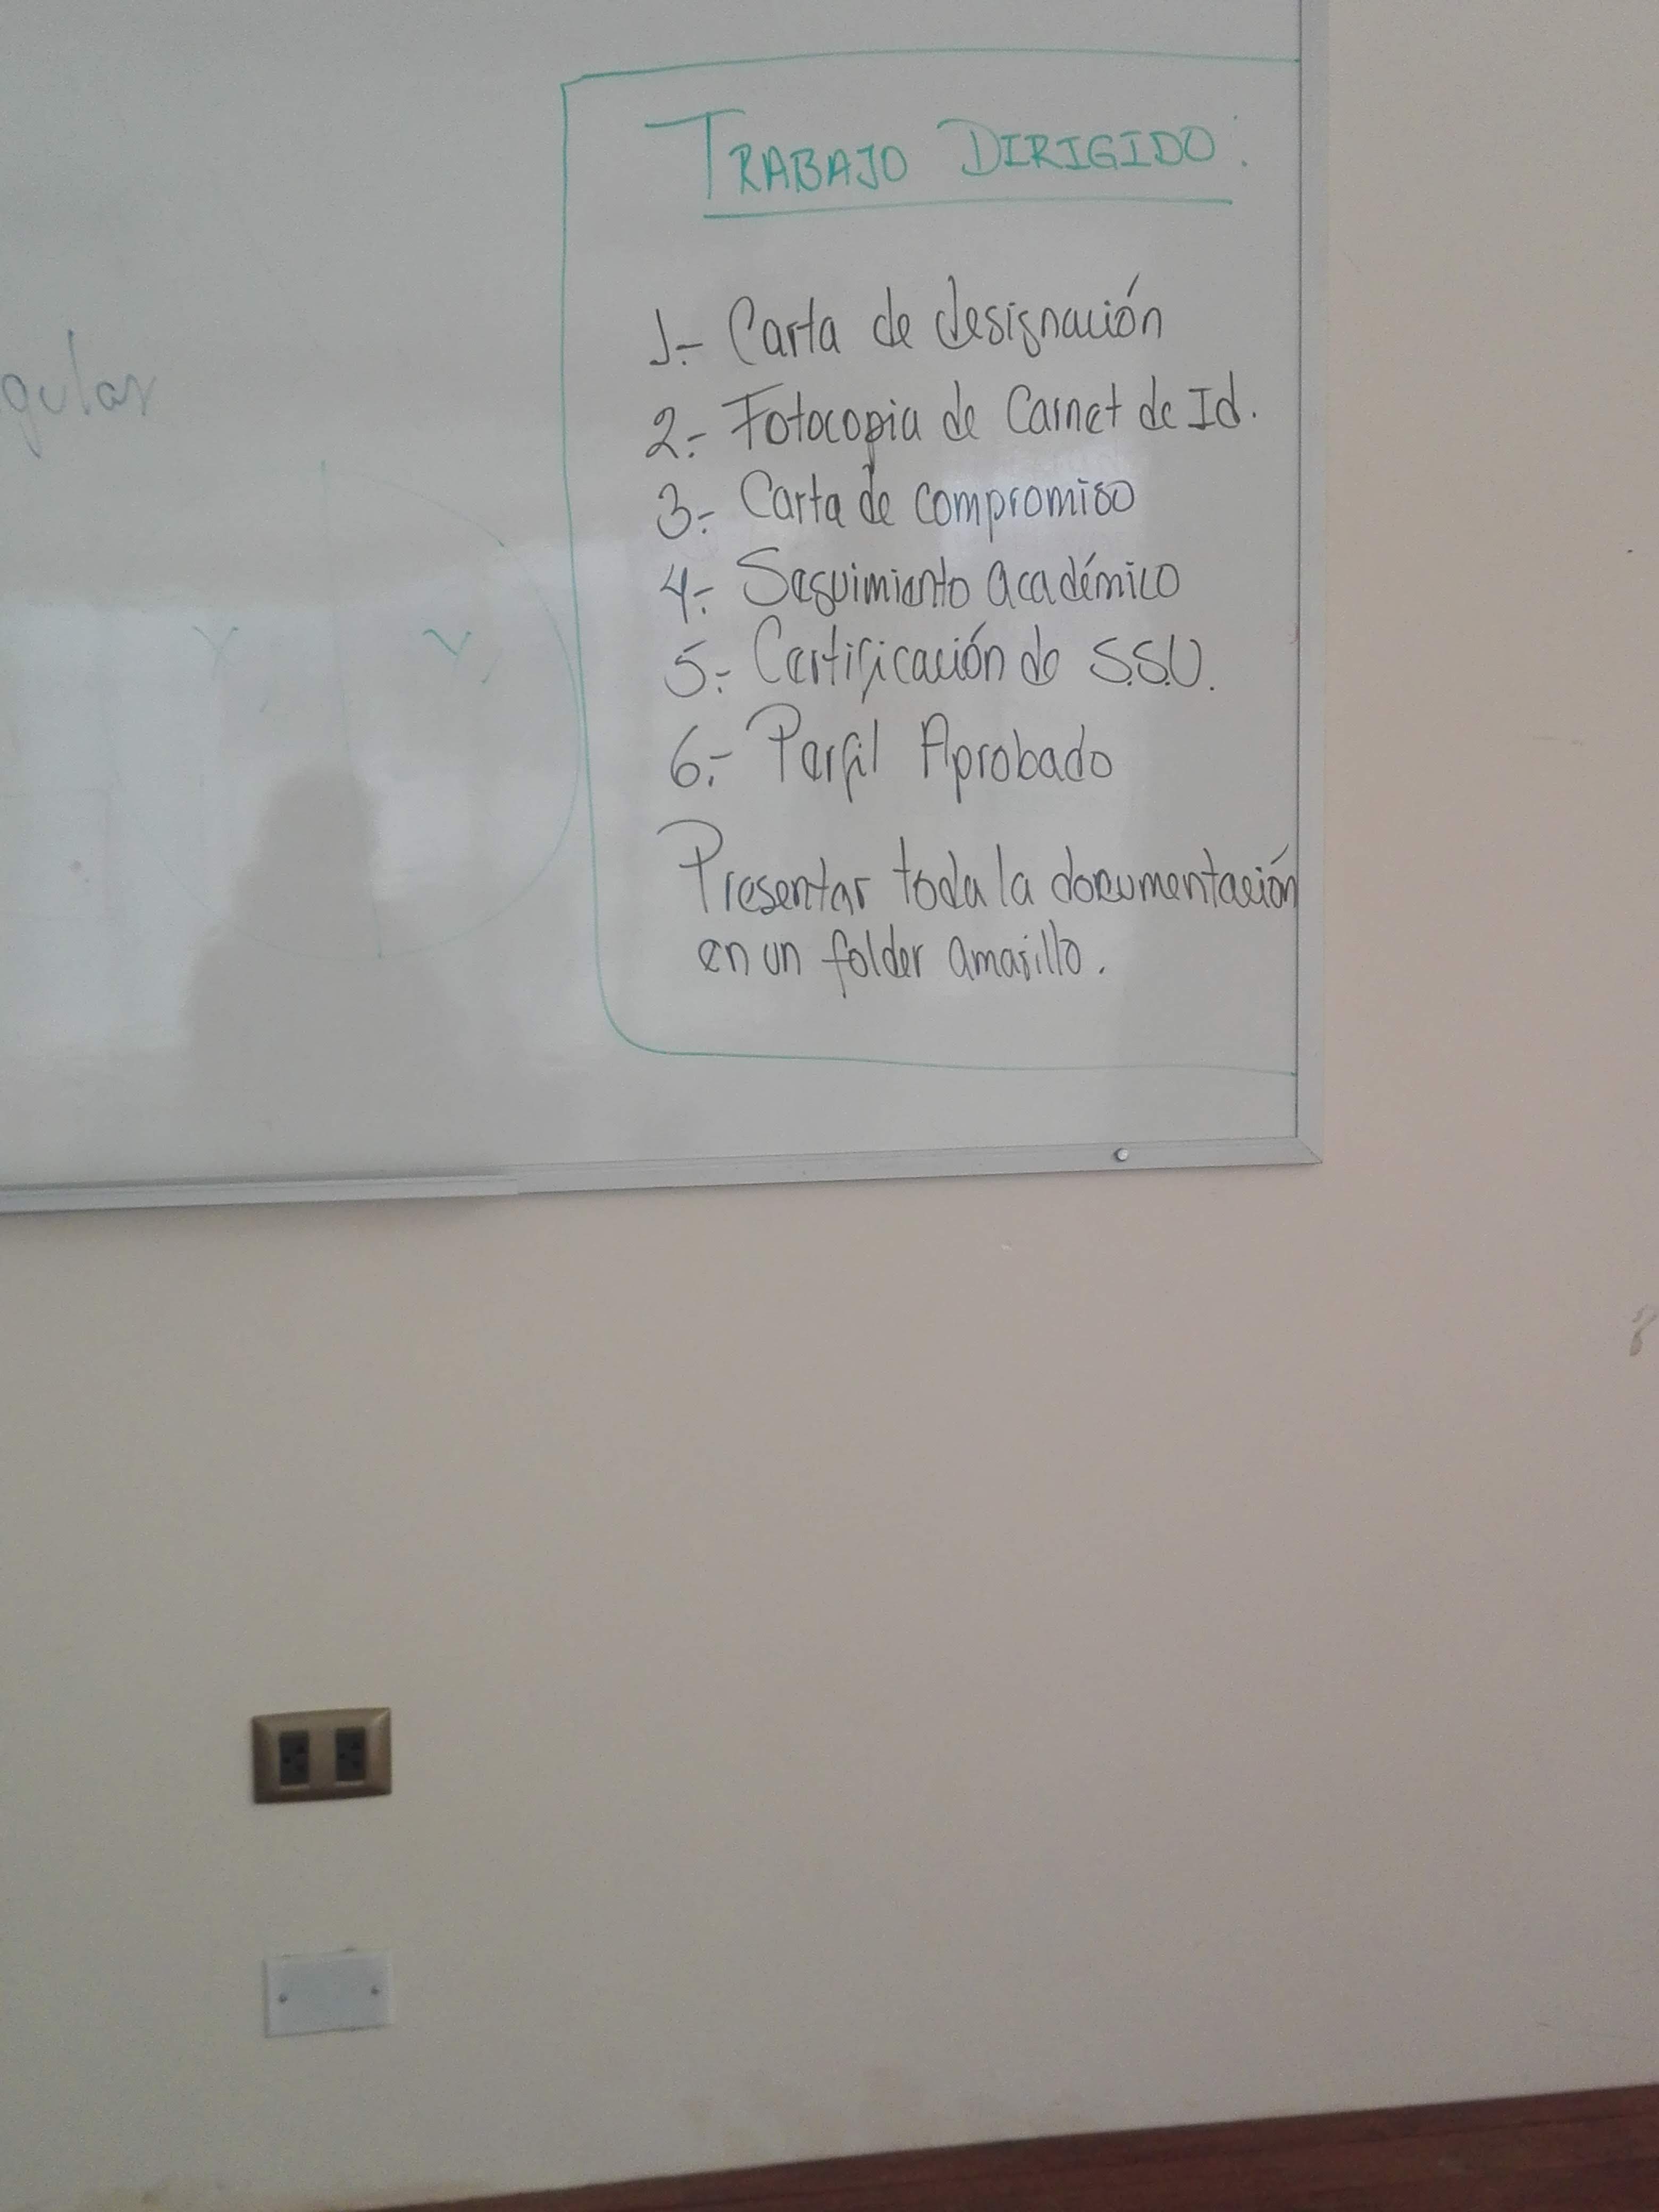 TRABAJO DIRIGIDO:
1.- Carta de designación
2.- Fotocopia de Carnet de Id.
3.- Carta de compromiso
4.- Seguimiento académico
5.- Certificación de S.S.U.
6.- Perfil Aprobado
Presentar toda la documentación
en un folder amarillo.
gular